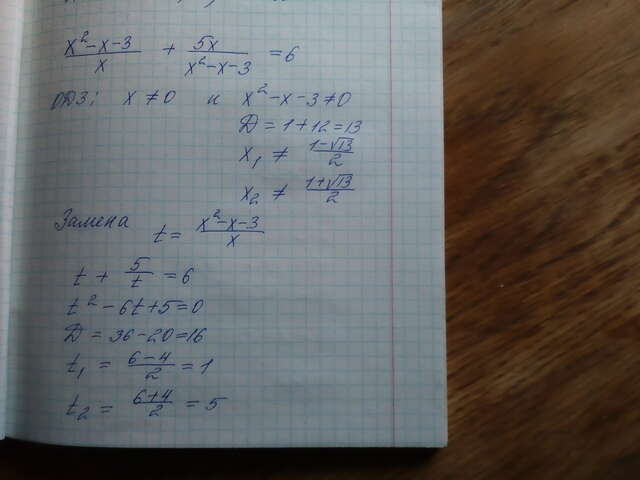 (x²-x-3)/x + 5x/(x²-x-3) = 6
ОДЗ: x ≠ 0 и x²-x-3≠0
D = 1+12=13
x₁ ≠ (1-√13)/2
x₂ ≠ (1+√13)/2
Замена t = (x²-x-3)/x
t + 5/t = 6
t² - 6t+5=0
D = 36-20=16
t₁ = (6-4)/2 = 1
t₂ = (6+4)/2 = 5